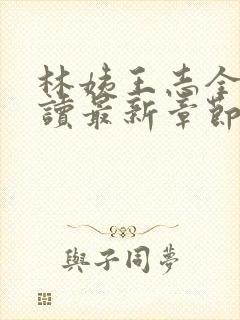 林姨王志全
讀最新章節
與子同夢